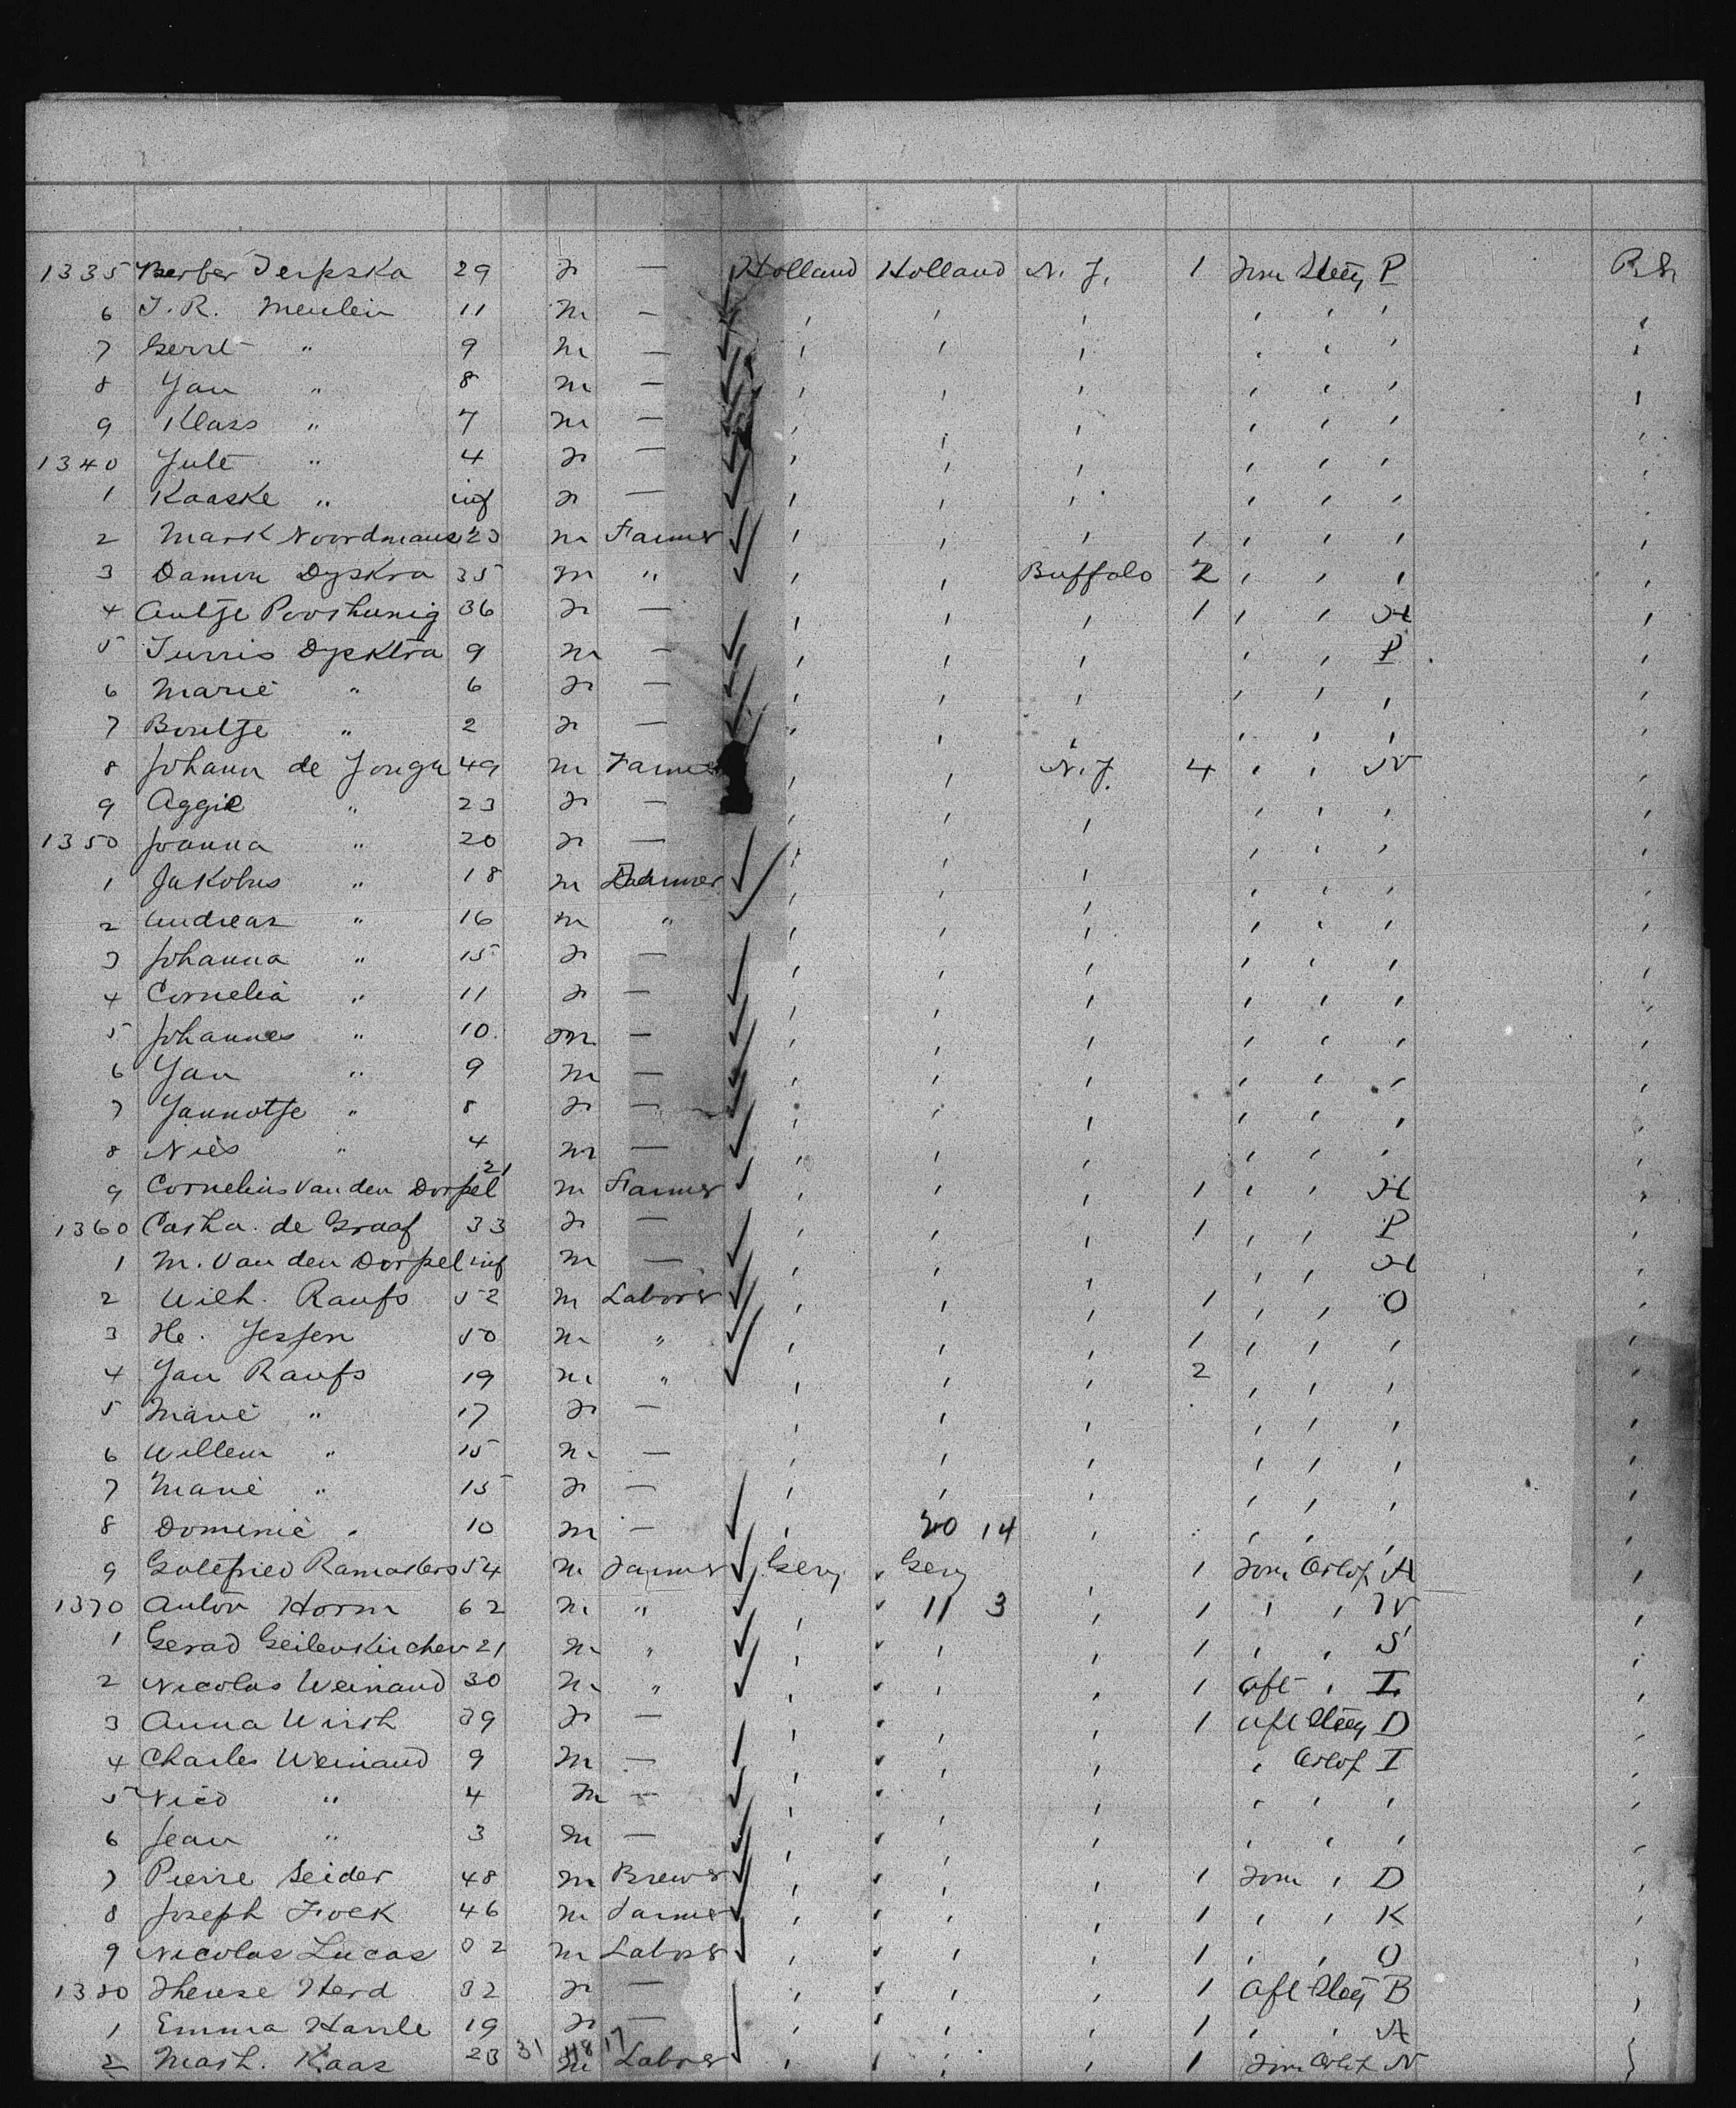 1335 Berber Terpska 29 f — Holland Holland N. J. 1 Steg P
6 J. R. Meulen 11 m —
7 Gerrt " 9 m —
8 Jan " 8 m —
9 Klass " 7 m —
1340 Jult " 4 f —
1 Kaaske " inf f —
2 Mark Noordmans 23 m Farmer 1
3 Damen Dyskra 35 m " Buffalo 2
4 Antje Poosthunig 36 f — 1 H
5 Jurris Dyksktra 9 m — P
6 Marie " 6 f —
7 Boultje " 2 f —
8 Johann de Jonga 49 m Farmer N. J. 4 N
9 Aggie " 23 f —
1350 Joanna " 20 f —
1 Jakobus " 18 m Farmer
2 Andreas " 16 m "
3 Johanna " 15 f —
4 Cornelia " 11 f —
5 Johannes " 10 m —
6 Jan " 9 m —
7 Jannotje " 8 f —
8 Nies " 4 m —
9 Cornelius Van den Dorpel 21 m Farmer 1 H
1360 Casha. de Graaf 33 f — 1 P
1 M. Van den Dorpel inf m — H
2 Wilh. Raufs 52 m Laborer 1 O
3 He. Jessen 50 m " 1
4 Jan Raufs 19 m " 2
5 Marie " 17 f —
6 Willem " 15 m —
7 Marie " 15 f —
8 Domenie " 10 m — 20 14
9 Gottfried 54 m Farmer Gery Gery 1 Orlof A
1370 Anton Horm 62 m " 11 3 1 N
1 Gerad Geilenkirchen 21 m " 1 S
2 Nicolas Weinand 30 m " 1 Aft " I
3 Anna Wirth 39 f — 1 Aft Steg D
4 Charles Weinand 9 m — Orlof I
5 Nico " 4 m —
6 Jean " 3 m —
7 Pierre Seider 48 m Brewer 1 D
8 Joseph Fock 46 m Farmer 1 K
9 Nicolas Lucas 32 m Laborer 1 O
1380 Therese Herd 32 f — 1 Aft Steg B
1 Emma Hanle 19 f — 1 A
2 Math. Kaas 23 31 48 17 m Laborer 1 Orlof N